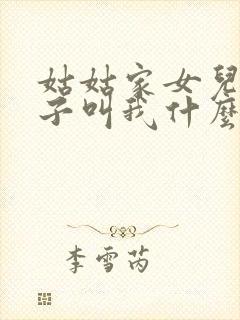 姑姑家女兒
子叫我什麼
李雪芮